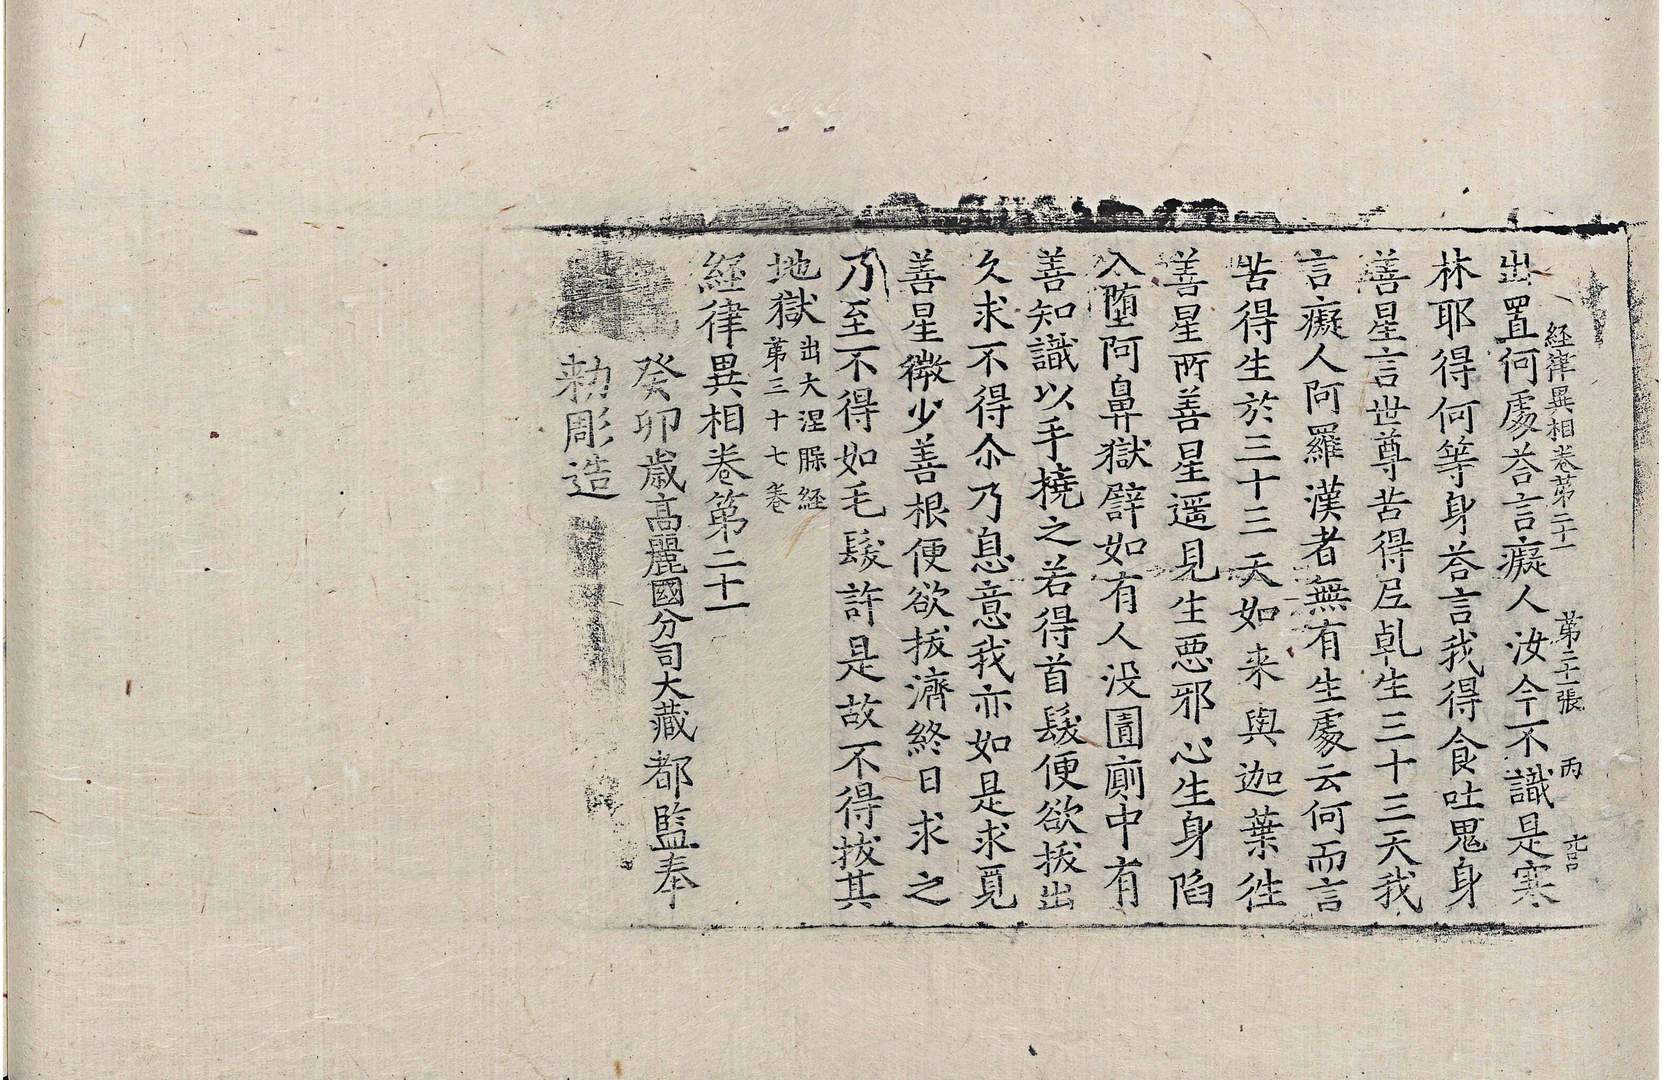 経律異相卷第二十一 第二十一張 丙
出置何處荅言癡人汝今不識是寒
林耶得何等身荅言我得食吐鬼身
善星言世尊苦得尼乹生三十三天我
言癡人阿羅漢者無有生處云何而言
苦得生於三十三天如来與迦葉徃
善星所善星遥見生悪邪心生身陷
入墮阿鼻獄譬如有人没圊廁中有
善知識以手撓之若得首髮便欲拔出
久求不得尒乃息意我亦如是求覓
善星微少善根便欲拔濟終日求之
乃至不得如毛髮許是故不得拔其
地獄出大涅槃経
第三十七卷
経律異相卷第二十一
癸卯歲高麗國分司大藏都監奉
勅彫造